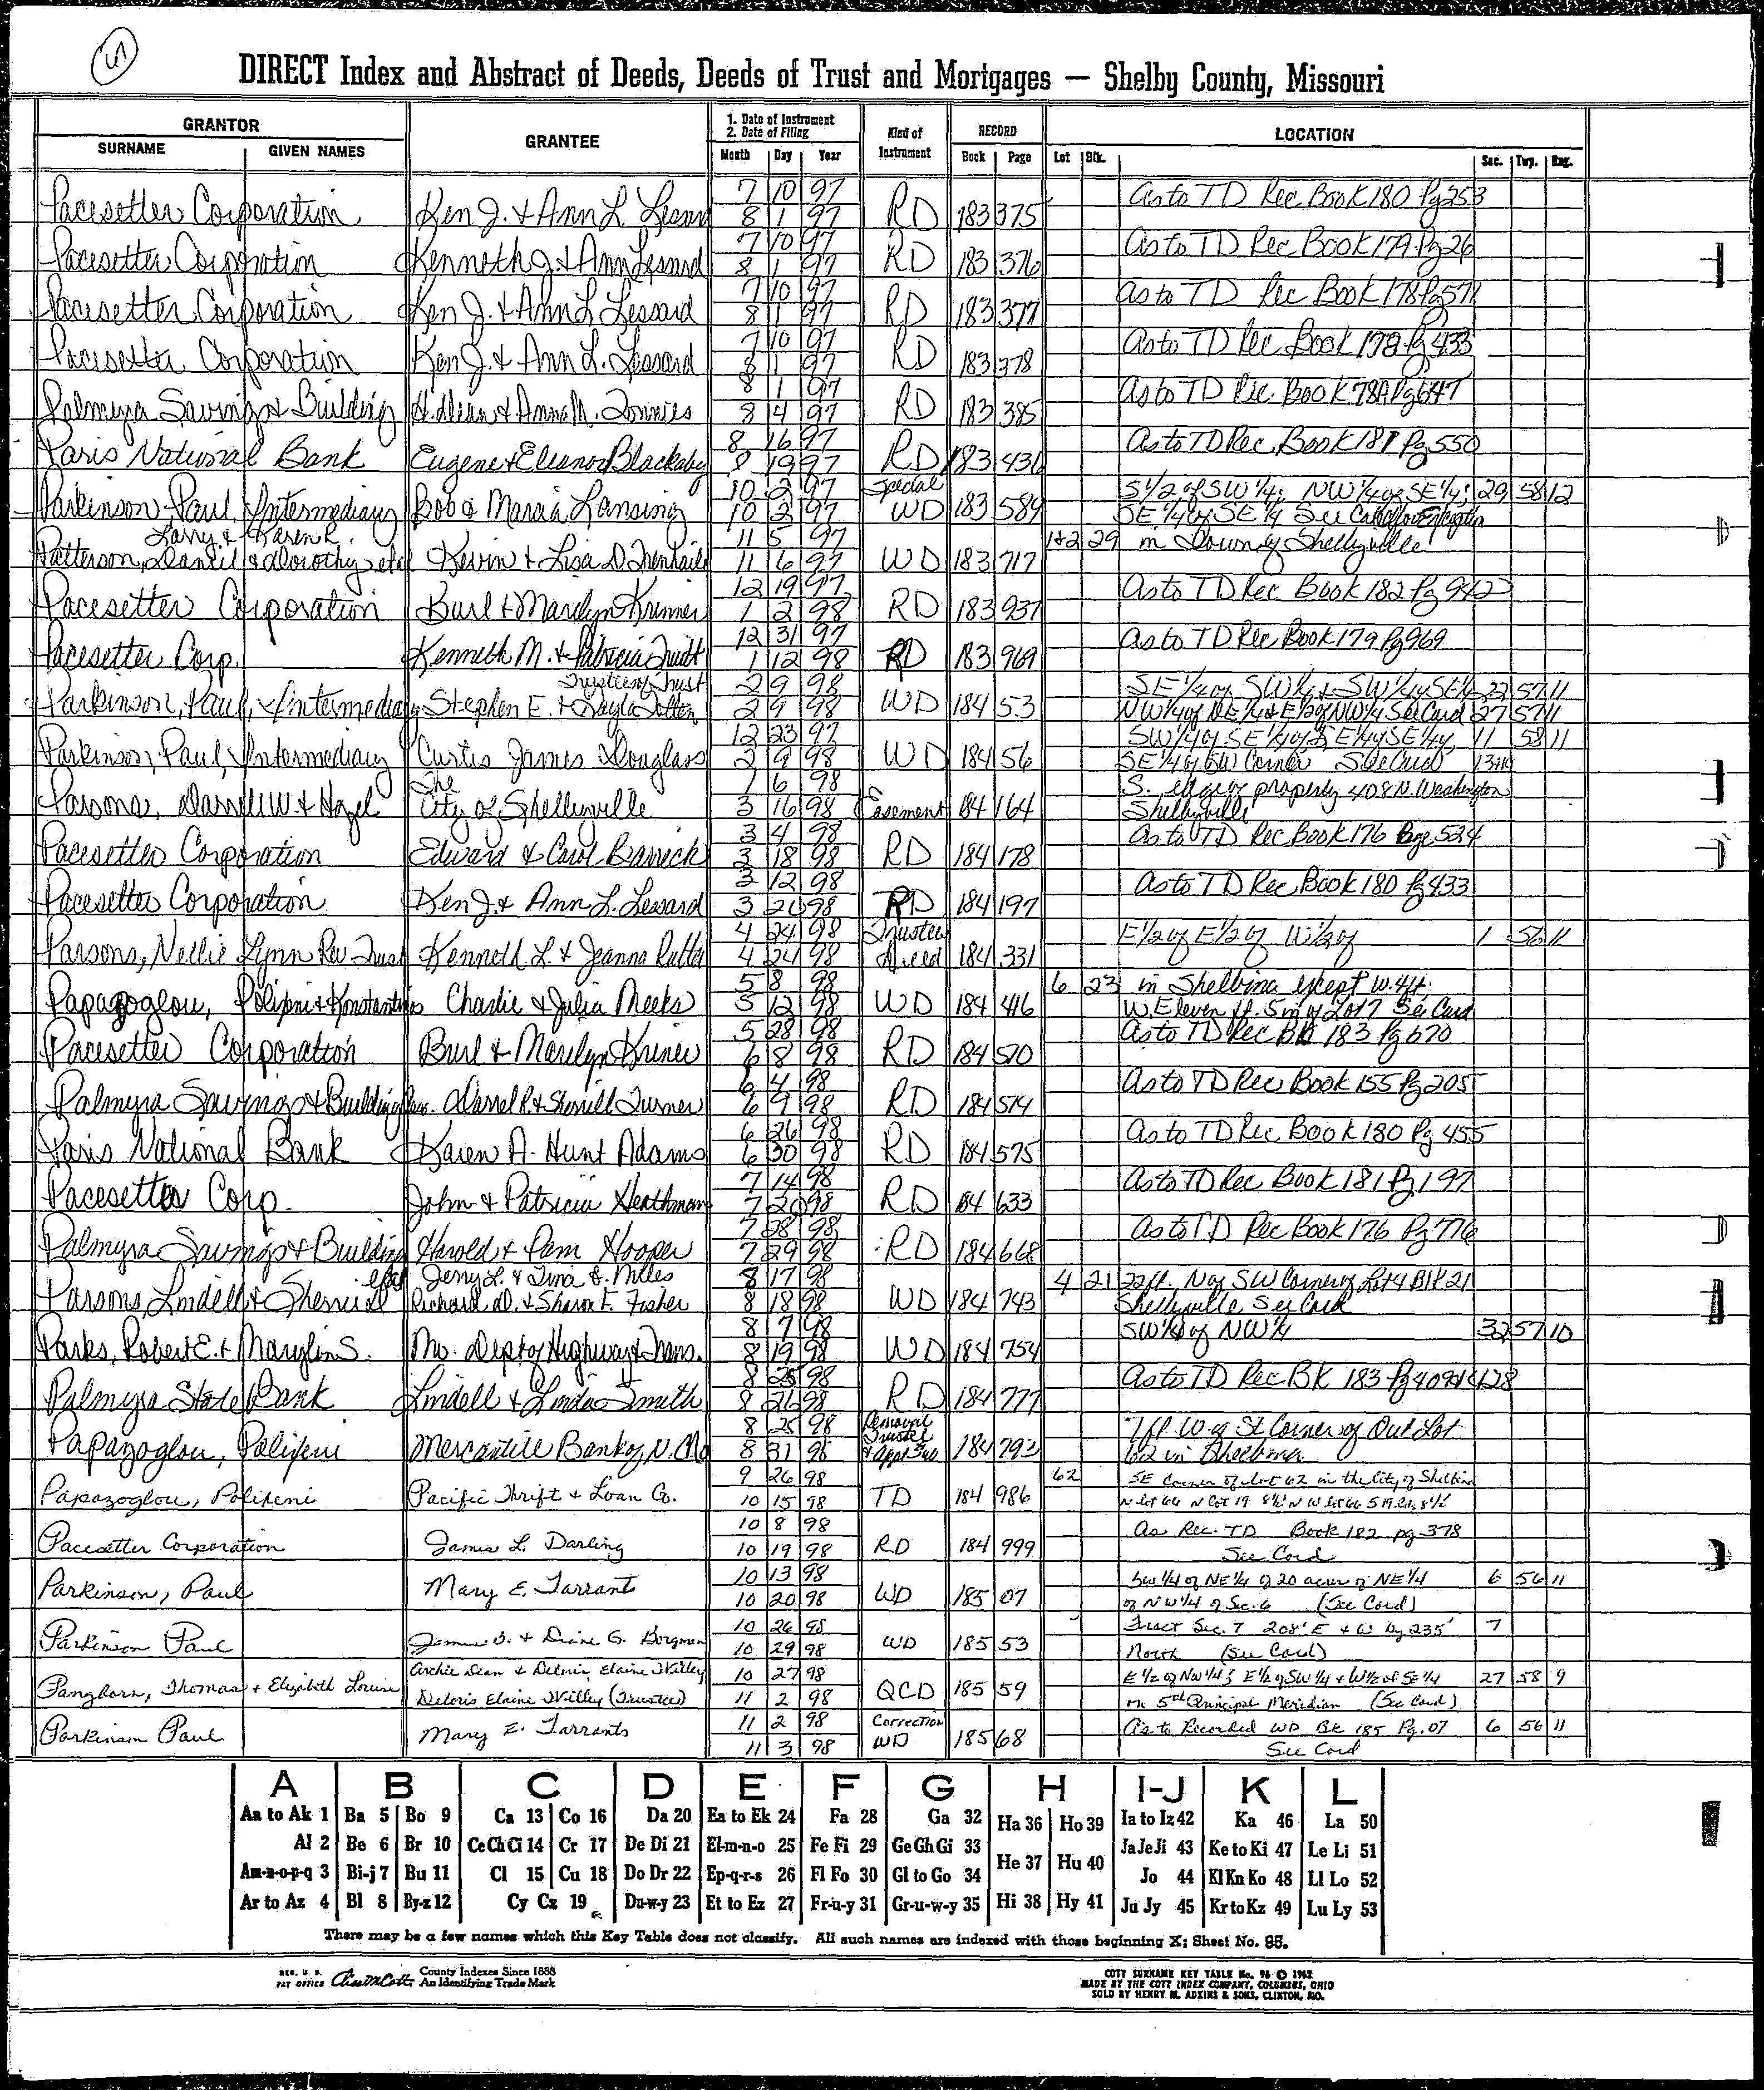 5
DIRECT Index and Abstract of Deeds, Deeds of Trust and Mortgages — Shelby County, Missouri
GRANTOR GRANTEE 1. Date of Instrument 2. Date of Filing Kind of Instrument RECORD LOCATION
SURNAME GIVEN NAMES Month Day Year Book Page Lot Blk. Sec. Twp. Rng.
7 10 97 As to TD Rec Book 180 Pg 253
Pacesetter Corporation Ken J. & Ann L. 8 1 97 RD 183 375
7 10 97 As to TD Rec Book 179 Pg 26
Pacesetter Corporation Kenneth J. & Ann Lessard 8 1 97 RD 183 376
7 10 97 As to TD Rec Book 178 Pg 571
Pacesetter Corporation Ken J. & Ann L Lessard 8 1 97 RD 183 377
7 10 97 As to TD Rec Book 178 Pg 433
Pacesetter Corporation Ken J. & Ann L. Lessard 8 1 97 RD 183 378
8 1 97 As to TD Rec. Book Pg 647
Palmyra Savings & Building & Anna M. Tonnies 8 4 97 RD 183 385
8 16 97 As to TD Rec Book 181 Pg 550
Paris National Bank Eugene & Eleanor Blackaby 8 19 97 RD 183 431
10 2 97 Special S1/2 of SW 1/4; NW 1/4 of SE 1/4; 29 58 12
Parkinson Paul, Intermediary Bob & Marcia Lansing 10 2 97 WD 183 584 SE 1/4 of SE 1/4 See Card
Larry & Karen R. 11 5 97 1+2 29 in Town of Shelbyville
Patterson, Daniel & Dorothy etal Kevin & Lisa D. 11 6 97 WD 183 717
12 19 97 As to TD Rec Book 182 Pg 942
Pacesetter Corporation Burl & Marilyn 1 2 98 RD 183 937
12 31 97 As to TD Rec Book 179 Pg 969
Pacesetter Corp. Kenneth M. & Patricia 1 12 98 RD 183 969
Trustees of Trust 2 9 98 SE 1/4 of SW 1/4 & SW 1/4 of SE 1/4 22 57 11
Parkinson, Paul, Intermediary Stephen E. & Gayla 2 9 98 WD 184 53 NW 1/4 of NE 1/4 & E 1/2 of NW 1/4 See Card 27 57 11
12 23 97 SW 1/4 of SE 1/4 of SE 1/4 11 58 11
Parkinson, Paul, Intermediary Curtis James Douglass 2 9 98 WD 184 56 SE 1/4 of SW Corner See Card
The 1 6 98 S. edge of property 408 N. Washington
Parsons, Darrell W & Hazel City of Shelbyville 3 16 98 Easement 184 164 Shelbyville
3 4 98 As to TD Rec Book 176 Page 524
Pacesetter Corporation Edward & Carol Barrick 3 18 98 RD 184 178
3 12 98 As to TD Rec Book 180 Pg 433
Pacesetter Corporation Ken J. & Ann L. Lessard 3 20 98 RD 184 197
4 24 98 Trustee E 1/2 of E 1/2 of W 1/2 of 1 56 11
Parsons, Nellie Lynn Rev Trust Kenneth L. & Jeanna 4 24 98 Deed 184 331
5 8 98 6 23 in Shelbina except W. 4ft.
Papazoglou, Polixeni & Konstantinos Charlie & Julia Meeks 5 12 98 WD 184 416 W. Eleven ft. 5 in of Lot 7 See Card
5 28 98 As to TD Rec Bk 183 Pg 670
Pacesetter Corporation Burl & Marilyn Kriner 6 8 98 RD 184 520
6 4 98 As to TD Rec Book 155 Pg 205
Palmyra Savings & Building Darrel R & Sherrill Turner 6 9 98 RD 184 514
6 26 98 As to TD Rec Book 180 Pg 455
Paris National Bank Karen A. Hunt Adams 6 30 98 RD 184 575
7 14 98 As to TD Rec Book 181 Pg 197
Pacesetter Corp. John & Patricia Heathman 7 20 98 RD 84 633
7 28 98 As to TD Rec Book 176 Pg 776
Palmyra Savings & Building Harold & Pam Hooper 7 29 98 RD 184 668
etal Jerry L. & Tina S. Miles 8 17 98 4 21 22 ft. N of SW Corner of Lot 4 Blk 21
Parsons, Lindell & Richard D. & Sharon F. Fisher 8 18 98 WD 184 743 Shelbyville See Card
8 7 98 SW 1/4 of NW 1/4 32 57 10
Parks, Robert E. & Marylin S. Mo. Dept of Highway & Trans. 8 19 98 WD 184 754
8 25 98 As to TD Rec BK 183 Pg 409 & 428
Palmyra State Bank Lindell & Linda Smith 8 26 98 RD 184 777
8 25 98 Removal Trustee 7 ft W of St Corner of Out Lot
Papazoglou, Polixeni Mercantile Bank of N. Mo 8 31 98 & Appt Suc 184 793 62 in Shelbina
9 26 98 62 SE Corner of Lot 62 in the city of Shelbina
Papazoglou, Polixeni Pacific Thrift & Loan Co. 10 15 98 TD 184 986 N lot 66 N lot 19 8½' N W lot 66 S 19
10 8 98 As Rec. TD Book 182 pg 378
Pacesetter Corporation James L. Darling 10 19 98 RD 184 999 See Card
10 13 98 SW 1/4 of NE 1/4 of 20 acres of NE 1/4 6 56 11
Parkinson, Paul Mary E. Tarrants 10 20 98 WD 185 07 of NW 1/4 of Sec. 6 (See Card)
10 26 98 Tract Sec. 7 208' E + W by 235' 7
Parkinson Paul James B. & Diane G. Borgman 10 29 98 WD 185 53 North (See Card)
Archie Dean & Deloris Elaine Willey 10 27 98 E 1/2 of NW 1/4; E 1/2 of SW 1/4 + W 1/2 of SE 1/4 27 58 9
Pangborn, Thomas & Elizabeth Louise Deloris Elaine Willey (Trustee) 11 2 98 QCD 185 59 on 5th Principal Meridian (See Card)
11 2 98 Correction As to Recorded WD Bk 185 Pg. 07 6 56 11
Parkinson Paul Mary E. Tarrants 11 3 98 WD 185 68 See Card
A B C D E F G H I-J K L
Aa to Ak 1 Ba 5 Bo 9 Ca 13 Co 16 Da 20 Ea to Ek 24 Fa 28 Ga 32 Ha 36 Ho 39 Ia to Iz 42 Ka 46 La 50
Al 2 Be 6 Br 10 Ce Ch Ci 14 Cr 17 De Di 21 El-m-n-o 25 Fe Fi 29 Ge Gh Gi 33 He 37 Hu 40 Ja Je Ji 43 Ke to Ki 47 Le Li 51
Am-n-o-p-q 3 Bi-j 7 Bu 11 Cl 15 Cu 18 Do Dr 22 Ep-q-r-s 26 Fl Fo 30 Gl to Go 34 Jo 44 Kl Kn Ko 48 Ll Lo 52
Ar to Az 4 Bl 8 By-z 12 Cy Cz 19 Du-w-y 23 Et to Ez 27 Fr-u-y 31 Gr-u-w-y 35 Hi 38 Hy 41 Ju Jy 45 Kr to Kz 49 Lu Ly 53
There may be a few names which this Key Table does not classify. All such names are indexed with those beginning X; Sheet No. 85.
REG. U. S. PAT OFFICE County Indexes Since 1888 An Identifying Trade Mark
COTT SURNAME KEY TABLE No. 96 © 1962
MADE BY THE COTT INDEX COMPANY, COLUMBUS, OHIO
SOLD BY HENRY M. ADKINS & SONS, CLINTON, MO.